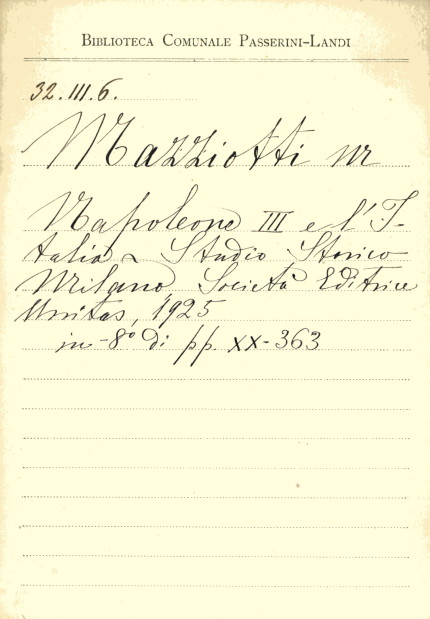 BIBLIOTECA COMUNALE PASSERINI-LANDI
32.III.6.
Mazziotti M
Napoleone III e l'I-
talia - Studio Storico
Milano, Società Editrice
Unitas, 1925
in-8° di pp. XX-363